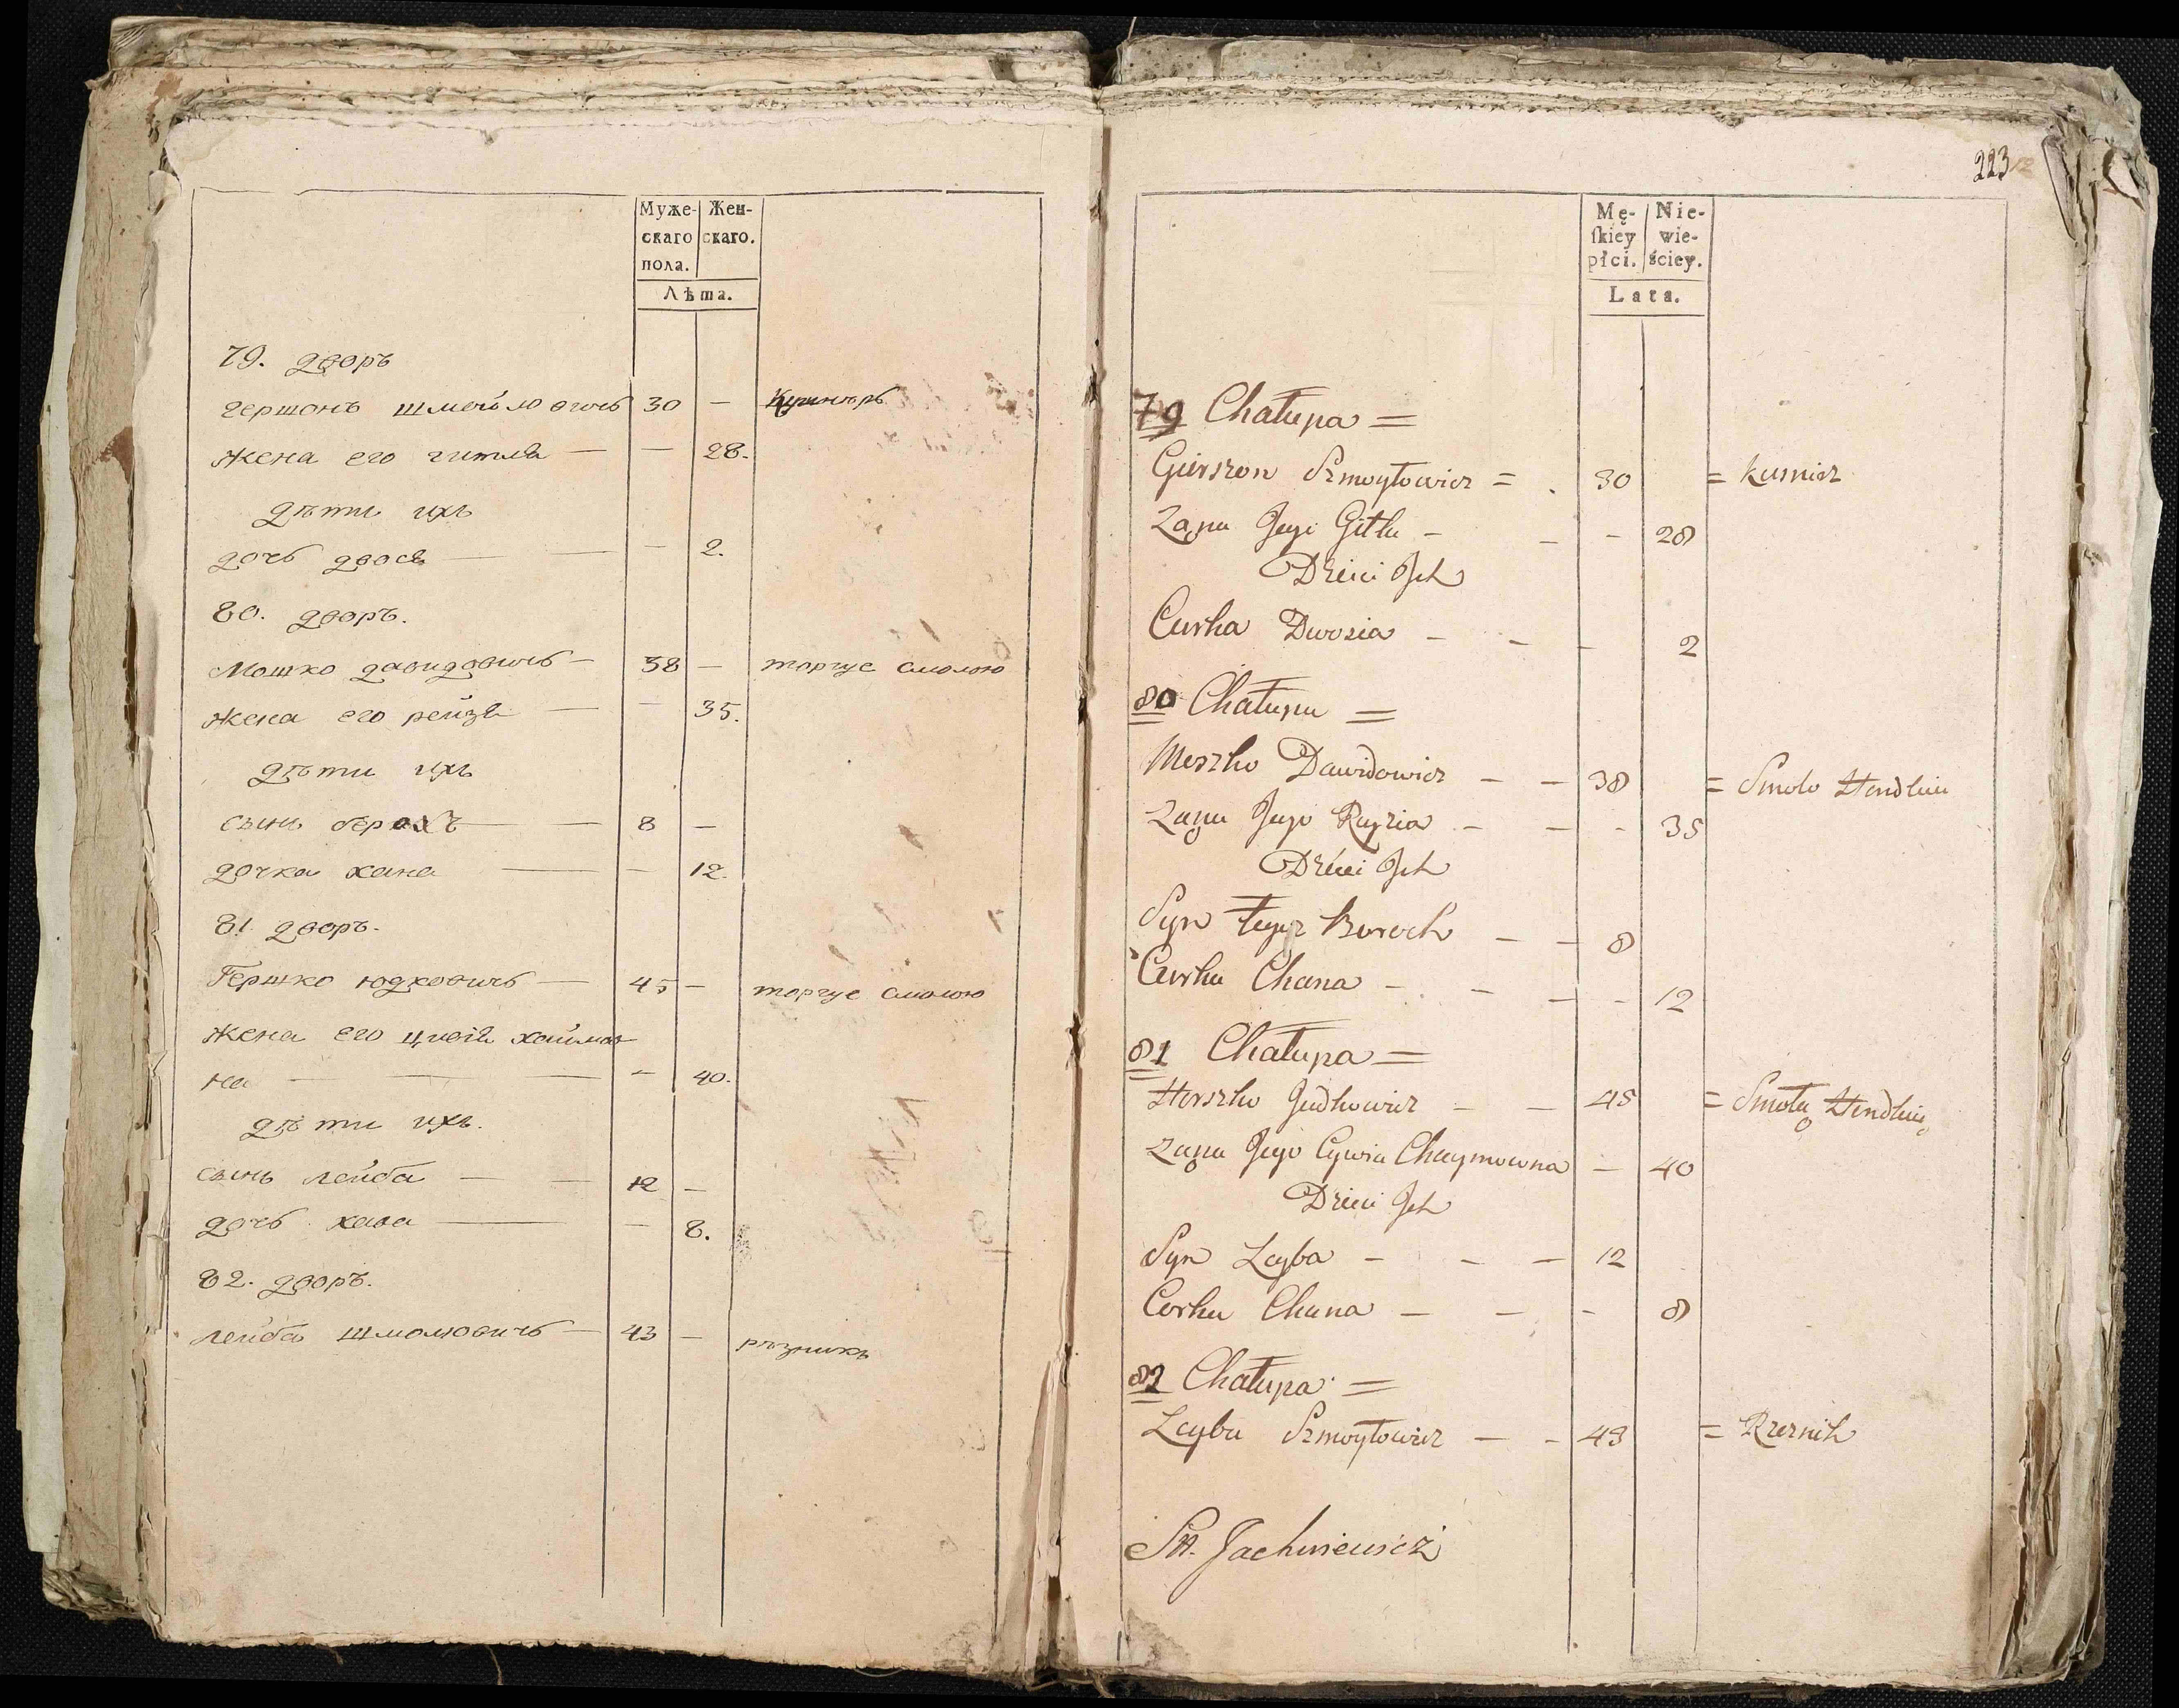 Муже- Жен-
скаго скаго.
пола.
Лѣта.
79. дворъ
гершонъ шмойловичъ 30 —
жена его гитля — — 28.
дѣти ихъ
дочь двося — — — 2.
80. дворъ.
Мошко давидовичъ — 38 — торгуе смолою
жена его рейзя — — 35.
дѣти ихъ
сынъ борохъ — 8 —
дочка хана — — 12.
81. дворъ.
Гершко юдковичъ — 45 — торгуе смолою
жена его цывя хаимов
на — — — 40.
дѣти ихъ.
сынъ лейба — — 12 —
дочь хава — — 8.
82. дворъ.
лейба шмолювичъ — 43 — рѣзникъ
223
Mę- Nie-
ſkiey wie-
płci. ściey.
Lata.
79 Chałupa =
Gierszon Szmoyłowicz = . 30 = Kusnierz
Ząna Jego Gitla — — — 28
Dzieci Jch
Curka Dwosia — — — 2
80 Chałupa =
Meszko Dawidowicz — — 38 = Smolo Hendluie
Ząna Jego Rayzia — — — 35
Dzieci Jch
Syn Boroch — — 8
Curka Chana — — — — 12
81 Chałupa =
Herszko Judkowicz — — 45 = Smołą Hendluie
Ząna Jego Cywia Chaymowna — 40
Dzieci Jch
Syn Leyba — — — 12
Corka Chana — — — 8
82 Chałupa =
Leyba Szmoyłowicz — — 43 = Rzeznik
St. Jachniewicz